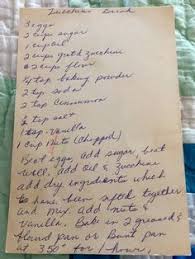 Zucchini Bread
3 eggs
2 cups sugar
1 cup oil
2 cups grat'd zucchini
2 cups flour
1/4 tsp baking powder
2 tsp Soda
2 tsp Cinnamon
1/2 tsp salt
1 tsp Vanilla
1 cup Nuts (Chopped)
Beat eggs, add sugar, beat
well. Add oil & zucchini
add dry ingredients which
to have been sifted together
and mix. Add nuts &
Vanilla. Bake in 2 greased &
floured pan or Bunt pan
at 350° for 1 hour.